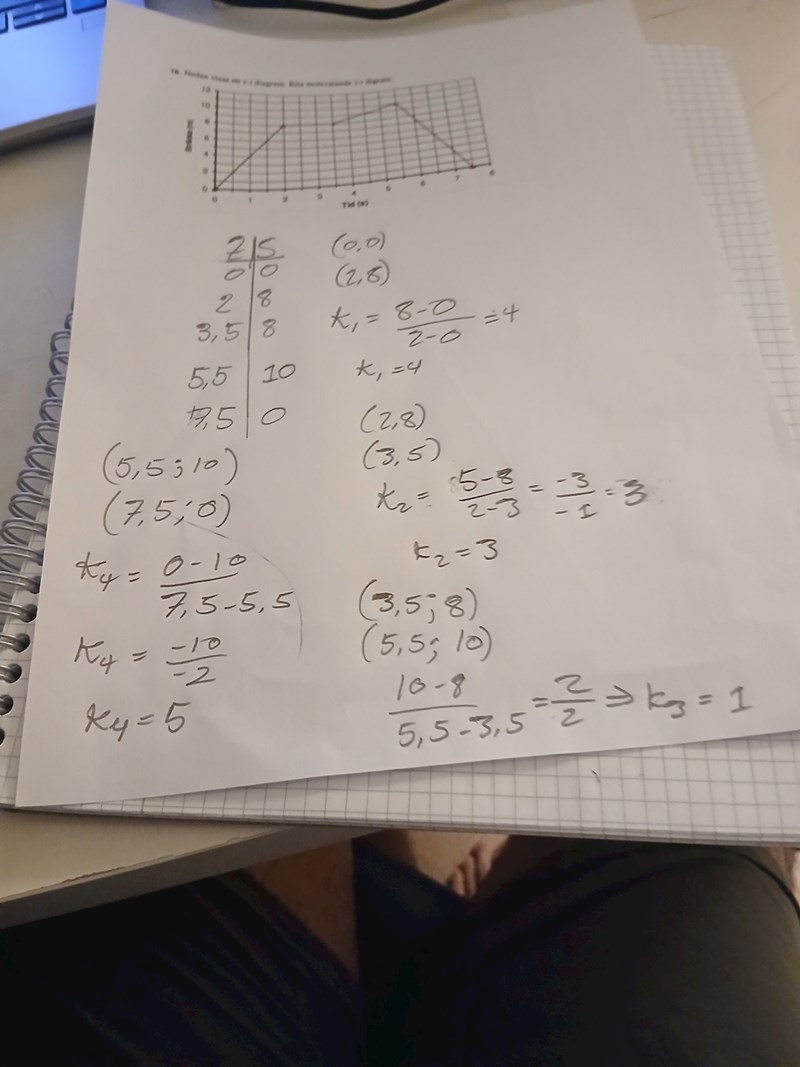 16. Nedan visas ett s-t diagram. Rita motsvarande v-t digram.
12
10
8
6
4
2
0
0 1 2 3 4 5 6 7 8
Tid (s)
7 | 5
0 | 0
2 | 8
3,5 | 8
5,5 | 10
7,5 | 0
(5,5 ; 10)
(7,5 ; 0)
K₄ = 0-10 / 7,5-5,5
K₄ = -10 / -2
K₄ = 5
(0,0)
(2,8)
K₁ = 8-0 / 2-0 = 4
K₁ = 4
(2,8)
(3,5)
K₂ = 5-8 / 2-3 = -3 / -1 = 3
K₂ = 3
(3,5 ; 8)
(5,5 ; 10)
10-8 / 5,5-3,5 = 2 / 2 ⇒ K₃ = 1